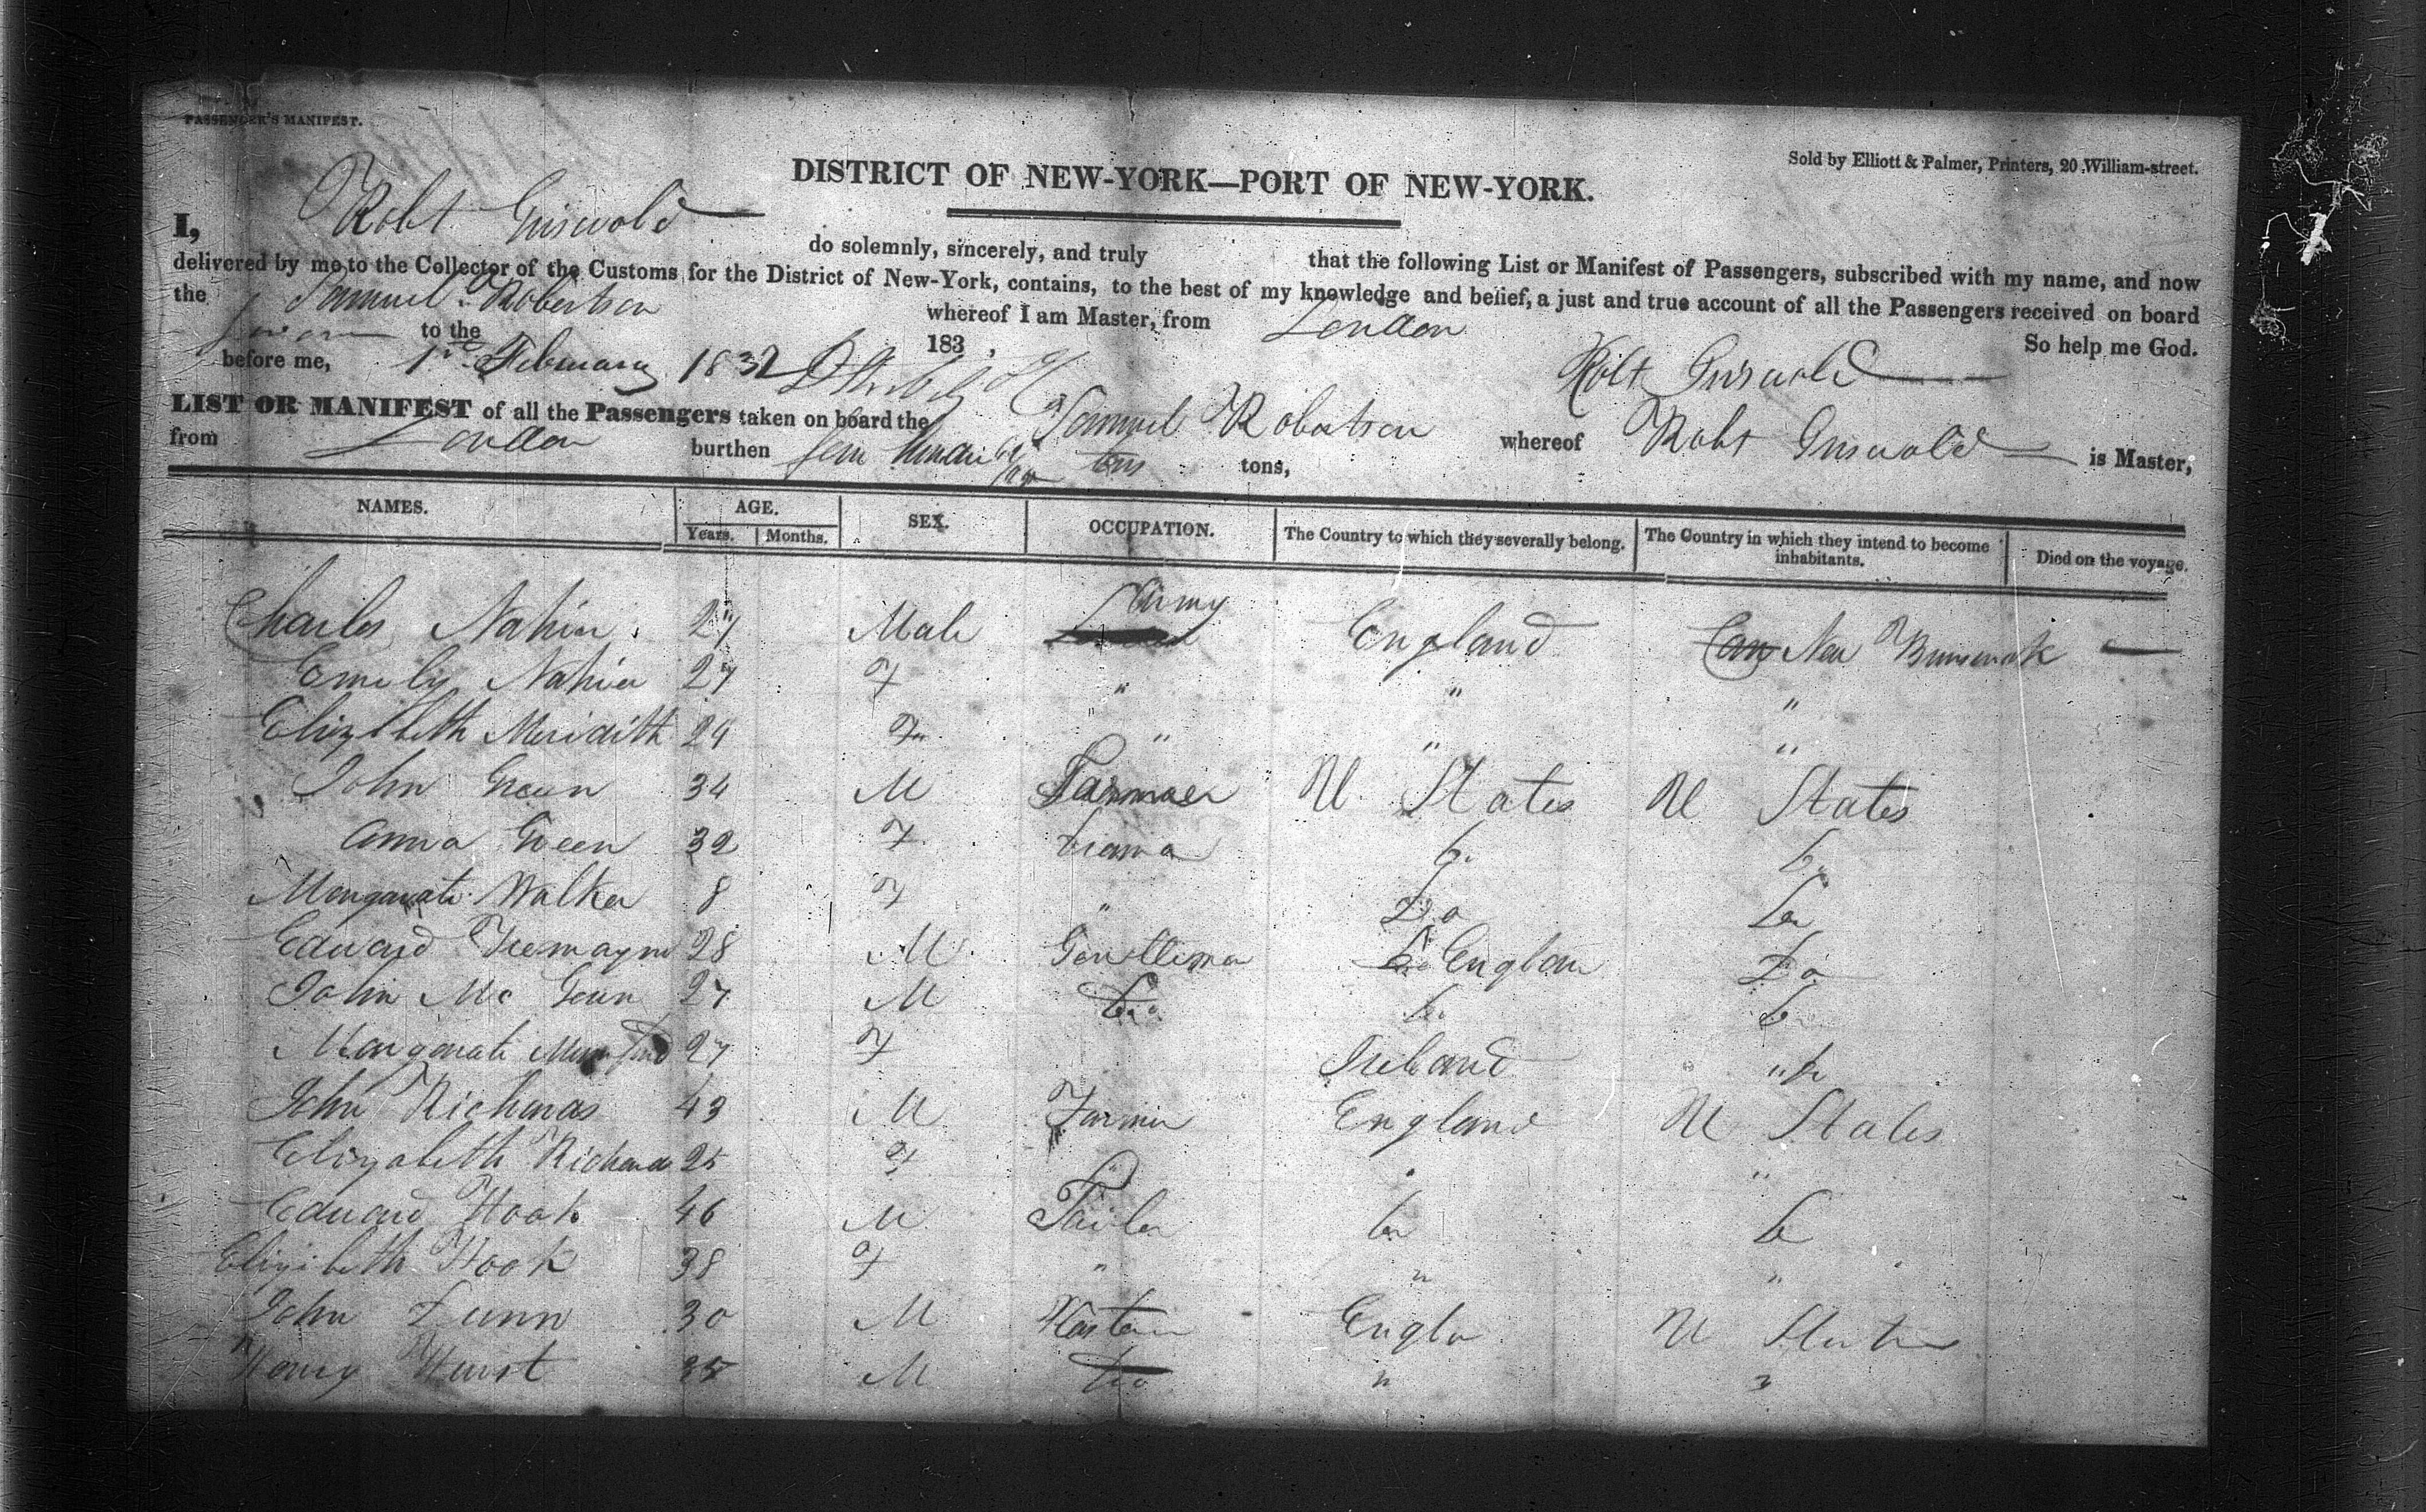 PASSENGER'S MANIFEST.
Sold by Elliott & Palmer, Printers, 20 William-street.
DISTRICT OF NEW-YORK—PORT OF NEW-YORK.
I, Robt Griswold do solemnly, sincerely, and truly that the following List or Manifest of Passengers, subscribed with my name, and now
delivered by me to the Collector of the Customs for the District of New-York, contains, to the best of my knowledge and belief, a just and true account of all the Passengers received on board
the Samuel Robertson whereof I am Master, from London
Sworn to the 183 , So help me God.
before me, 1st February 1832 Robt Griswold
LIST OR MANIFEST of all the Passengers taken on board the Samuel Robertson whereof Robt Griswold is Master,
from London burthen tons tons,
NAMES. AGE. SEX. OCCUPATION. The Country to which they severally belong. The Country in which they intend to become inhabitants. Died on the voyage.
Years. Months.
Charles 27 Male Army England Can New Brunswick —
Emely 27 F " " "
Elizibeth Meridith 24 F " " "
John Green 34 M Farmer U States U States
Anna Green 32 F
Walker 8 F " Do Do
Edward Tremayn 28 M Gentleman Do Englan Do
John Mc 27 M Do Do Do
27 F Ireland " Do
John Richards 43 M Farmer England U States
Elizabeth Richards 25 F " " "
Edward Hook 46 M Tailor Do Do
Elizibeth Hook 38 F " " "
John Dunn 30 M Engla U States
Henry Hurst 35 M Do " "